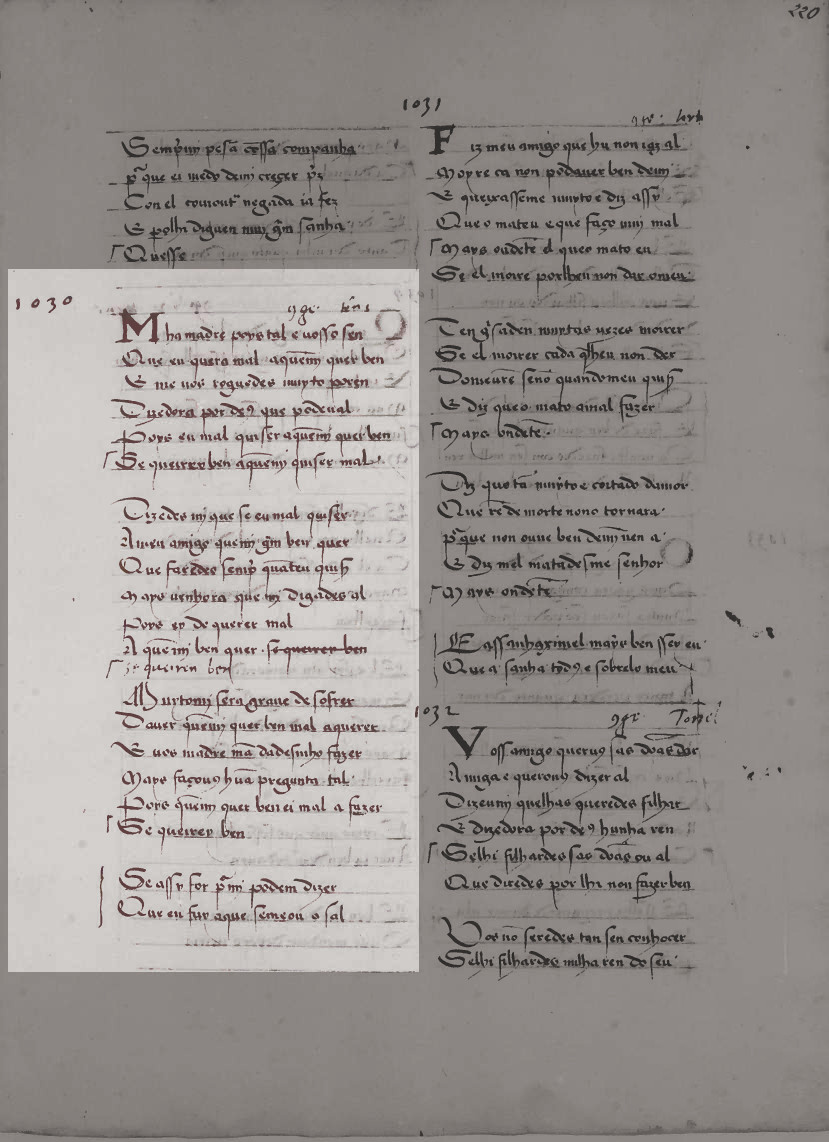 220
1031
Semp̄ m̄ pesā
companha
p̄ que ei medo de mi creçer p̄z
Con el
negada ia fez
E
sanha
Quesse
1030
tēn 1
Mha madre poys tal e uosso sen
Que eu quera mal a quen mj quer ben
E me uos roguedes muyto porē
Dizedora por deꝰ que podeual
Poys eu mal quiser a quē mj quer ben
Se querrey ben a quē mj quiser mal
Dizedes mj que se eu mal quiser
A meu amigo que mj gm̄ ben quer
Que faredes semp̄ quāteu
Mays uenhora que mi digades al
Poys eu de querer mal
A que mi ben quer. se querrey ben
se querrey ben
Muytomi sera graue de sofrer
Dauer quē mj quer ben mal a querer
E uos madre mādadesmho fazer
Mays façouꝰ hūa pregunta tal
Poys quē mj quer ben ei mal a fazer
Se querrey ben
Se assy for p̄ mi podem dizer
Que eu fuy a que semeou o sal
Fiz meu amigo que hu non iaz al
Moyre ca non pode auer ben de mj
E queixasseme muyto e diz assy
Que o mateu e que faço muj mal
Mays ondete el que o mato eu
Se el moire por lheu non dar o meu
Ten q̄ sa den muytas uezes moirer
Se el morer cada
eu non der
Do meu
quando meu
E diz que o mato a mal fazer
Mays ondete
Diz quo tā muyto e coitado damor
Que rē de morte nono tornara
p̄ que non ouue ben de mj nen a
E diz mel matadesme senhor
Mays ondete
E assanhaximiel mayr ben sser eu
Que a sanha todꝰ e sobrelo meu
1032
Voss amigo quer uꝰ sas doas dar
Amiga e queronh dizer al
Dizenmj quelhas queredes filhar
E dizedora por deꝰ hunha ren
Selhi filhardes sas doas ou al
Que diredes por lhi non fazer ben
Vos nō seredes tan sen conhocer
Selhi filhardes milha ren do seu